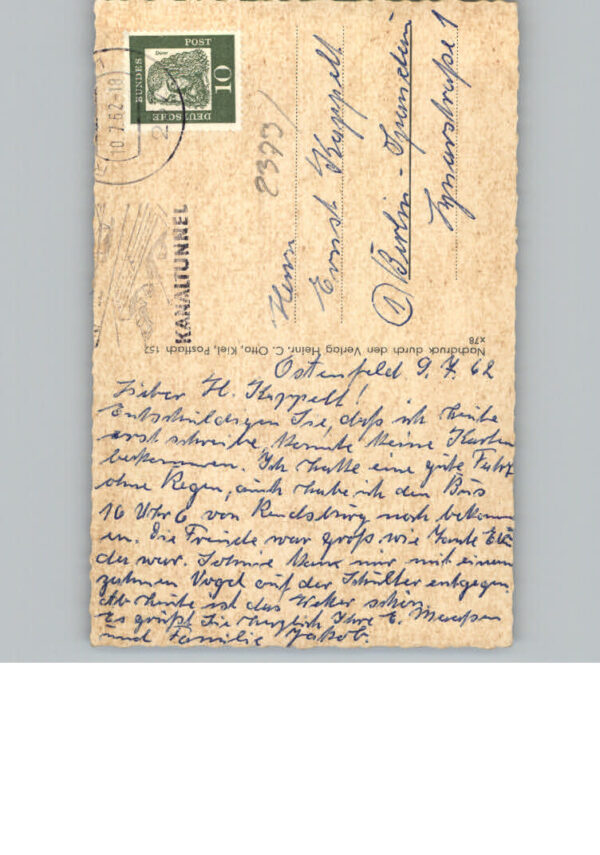 DEUTSCHE
BUNDES
POST
10
Dürer
10.7.62-18
KANALTUNNEL
2393
Herrn
Ernst Kappell
① Berlin-Spandau
Lynarstraße 1
Nachdruck durch den Verlag Heinr. C. Otto, Kiel, Postfach 157
x78
Ostenfeld 9.7.62
Lieber H. Kappell!
Entschuldigen Sie, daß ich heute
erst schreibe, konnte keine Karten
bekommen. Ich hatte eine gute Fahrt
ohne Regen, auch habe ich den Bus
16 Uhr 6 von Rendsburg noch bekomm
en. Die Freude war groß wie Tante
da war. kam mir mit einem
zahmen Vogel auf der Schulter entgegen.
Ab heute ist das Wetter schön.
Es grüßt Sie herzlich Ihre E.
und Familie Jakob.